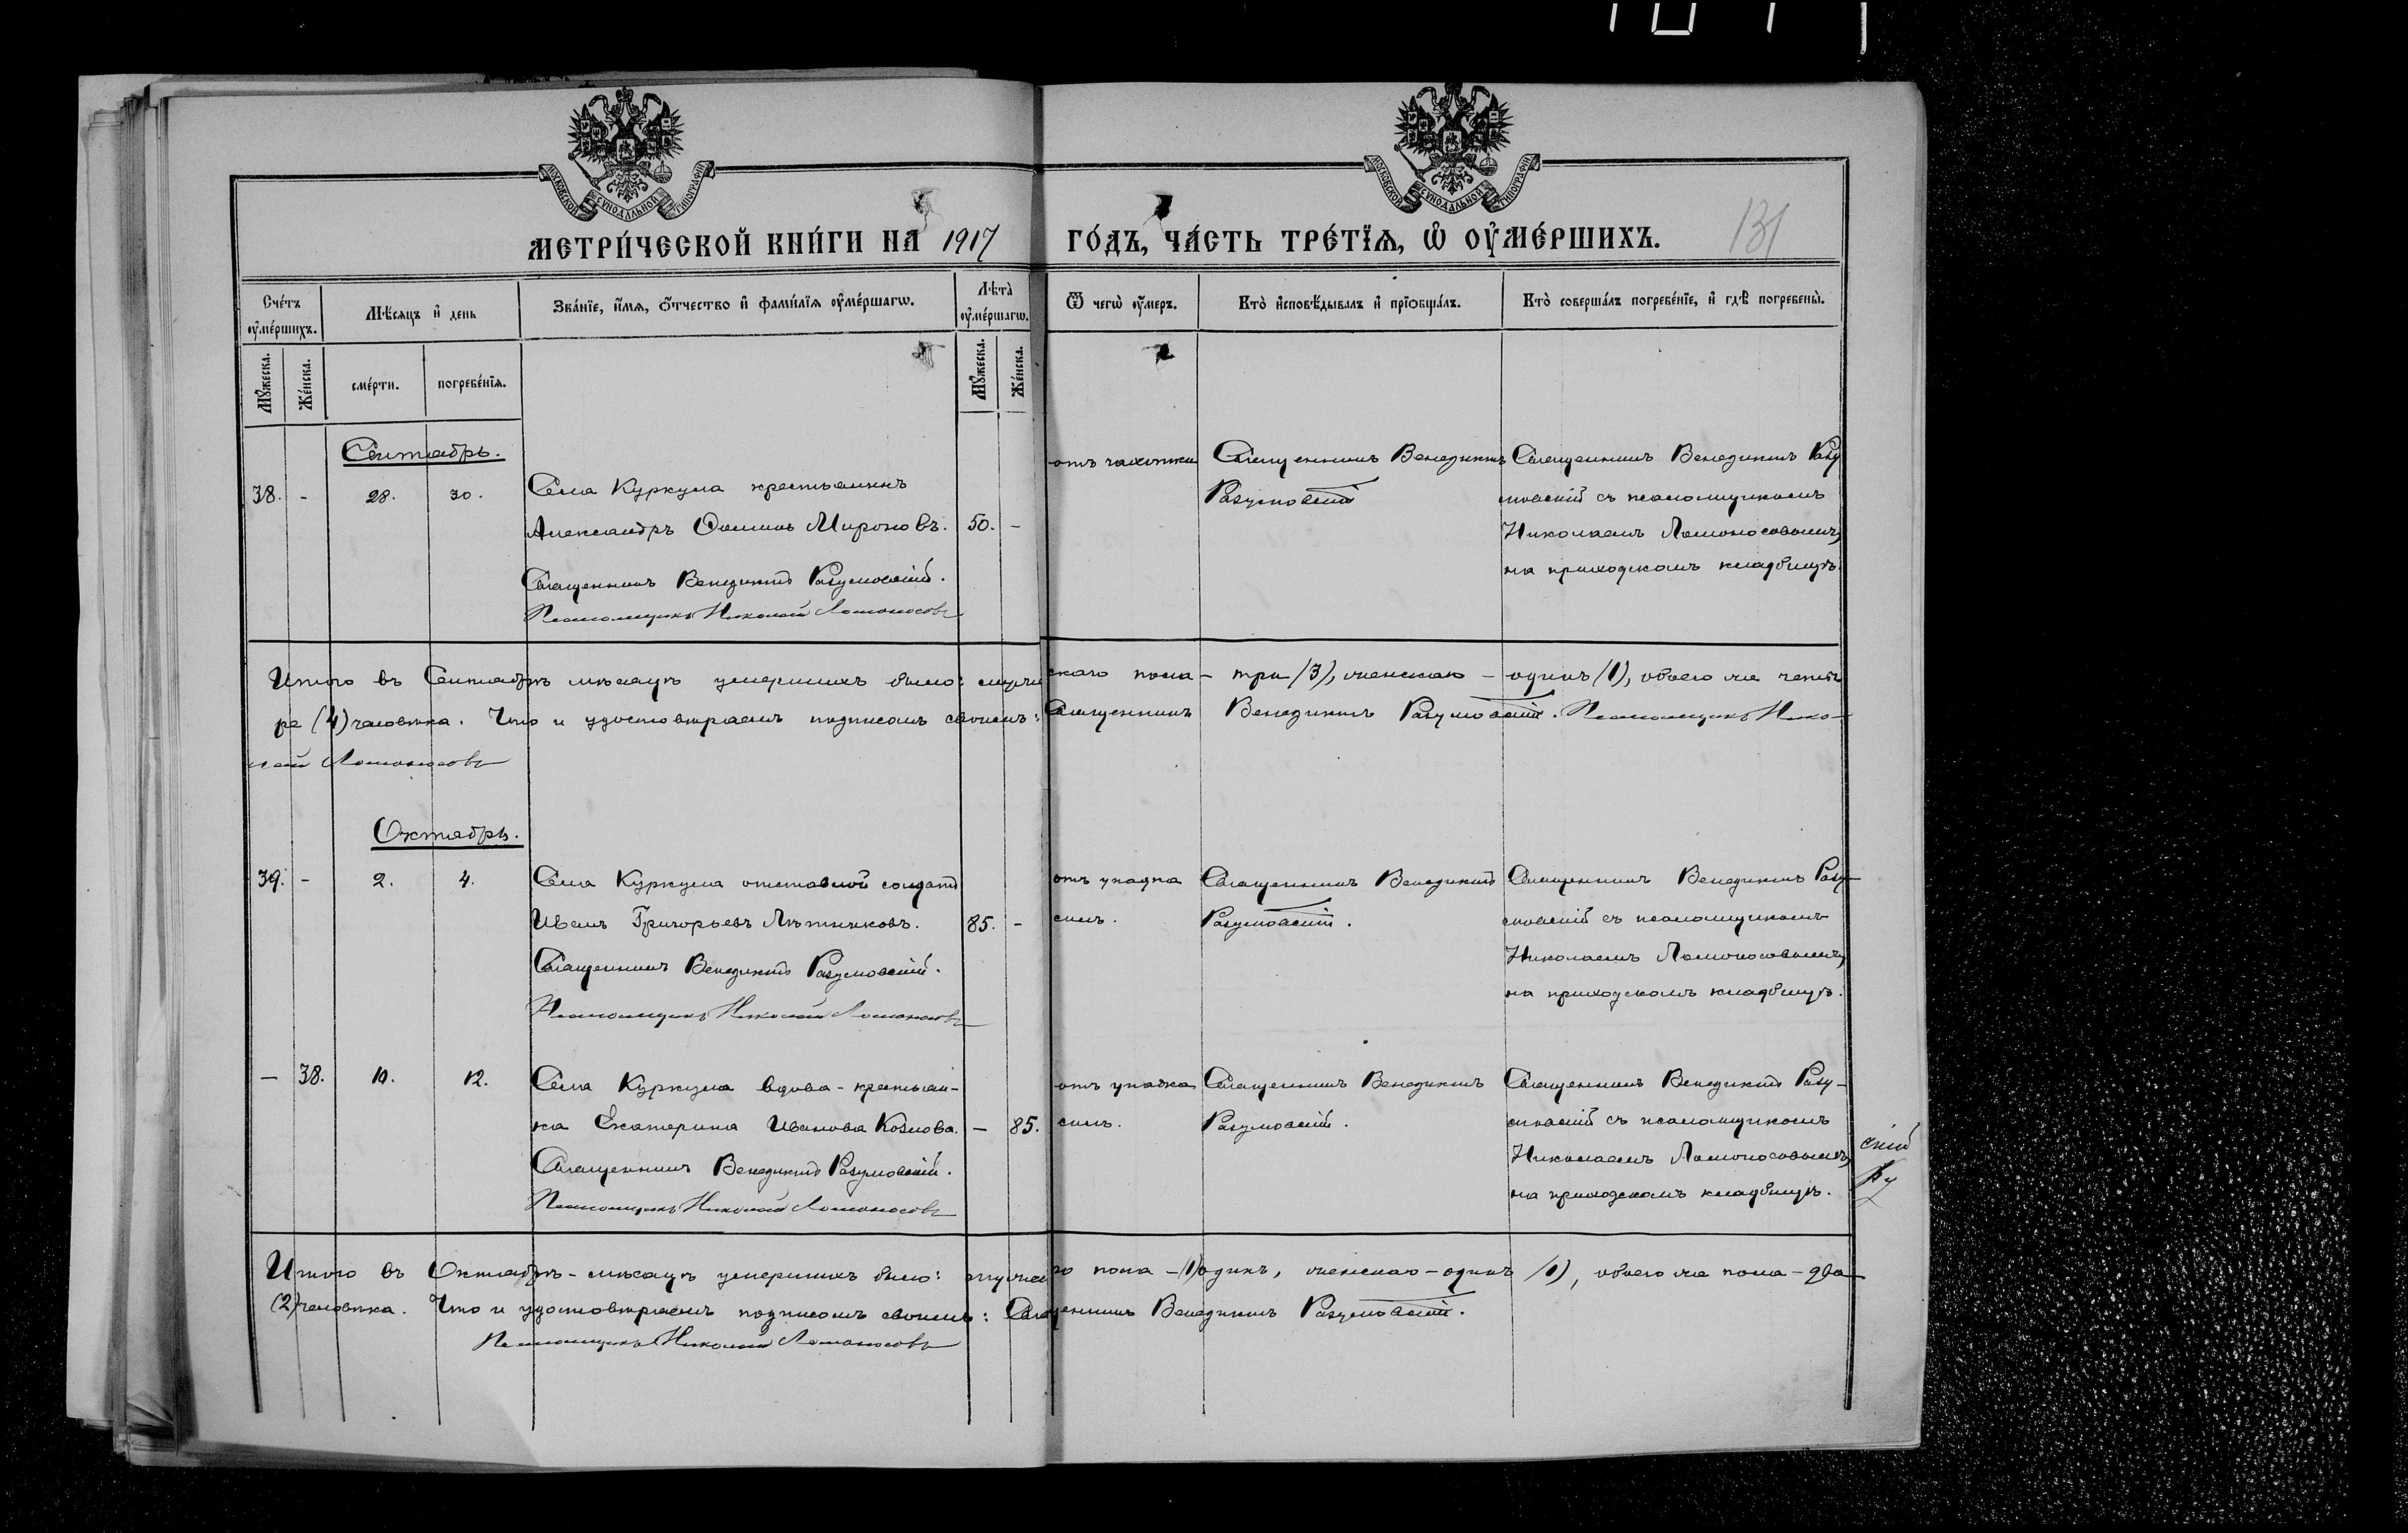 МОСКОВСКОЙ СѴНОДАЛЬНОЙ ТИПОГРАФІИ
МОСКОВСКОЙ СѴНОДАЛЬНОЙ ТИПОГРАФІИ
МЕТРИ́ЧЕСКОЙ КНИ́ГИ НА 1917 ГО́ДЪ, ЧА́СТЬ ТРЕ́ТЇѦ, Ѡ҆ ОУ҆МЕ́РШИХЪ. 131
Сче́тъ оу҆ме́ршихъ.
Мѣ́сяцъ и҆ день
Зва́нїе, и҆́мѧ, ѻ҆́тчество и҆ фами́лїѧ оу҆ме́ршагѡ.
Лѣта̀ оу҆ме́ршагѡ.
Ѿ чегѡ̀ оу҆́меръ.
Кто̀ и҆сповѣ́дывалъ и҆ прїѡбща́лъ.
Кто̀ соверша́лъ погребе́нїе, и҆ гдѣ̀ погребены̀.
Мꙋ́жеска.
Же́нска.
сме́рти.
погребе́нїѧ.
Мꙋ́жеска.
Же́нска.
Сентябрь.
38. - 28. 30.
Села Куркула крестьянинъ
Александръ Ѳоминъ Мироновъ. 50. -
Священникъ Венедиктъ Разумовскій.
Псаломщикъ Николай Ломоносовъ
отъ чахотки
Священникъ Венедиктъ
Разумовскій
Священникъ Венедиктъ Разу
мовскій съ псаломщикомъ
Николаемъ Ломоносовымъ,
на приходскомъ кладбищѣ.
Итого въ Сентябрѣ мѣсяцѣ умершихъ было: мужескаго пола - три (3), женскаго - одинъ (1), обоего же четы
ре (4) человѣка. Что и удостовѣряемъ подписомъ своимъ: Священникъ Венедиктъ Разумовскій. Псаломщикъ Нико-
лай Ломоносовъ
Октябрь.
39. - 2. 4.
Села Куркула отставной солдатъ
Иванъ Григорьевъ Лѣтниковъ. 85. -
Священникъ Венедиктъ Разумовскій.
Псаломщикъ Николай Ломоносовъ
отъ упадка
силъ.
Священникъ Венедиктъ
Разумовскій.
Священникъ Венедиктъ Разу-
мовскій съ псаломщикомъ
Николаемъ Ломоносовымъ,
на приходскомъ кладбищѣ.
- 38. 10. 12.
Села Куркула вдова-крестьян-
ка Екатерина Иванова Козлова. - 85.
Священникъ Венедиктъ Разумовскій.
Псаломщикъ Николай Ломоносовъ
отъ упадка
силъ.
Священникъ Венедиктъ
Разумовскій.
Священникъ Венедиктъ Разу-
мовскій съ псаломщикомъ
Николаемъ Ломоносовымъ,
на приходскомъ кладбищѣ.
Итого въ Октябрѣ-мѣсяцѣ умершихъ было: мужскаго пола - (1) одинъ, женскаго - одинъ (1), обоего же пола - два
(2) человѣка. Что и удостовѣряемъ подписомъ своимъ: Священникъ Венедиктъ Разумовскій.
Псаломщикъ Николай Ломоносовъ